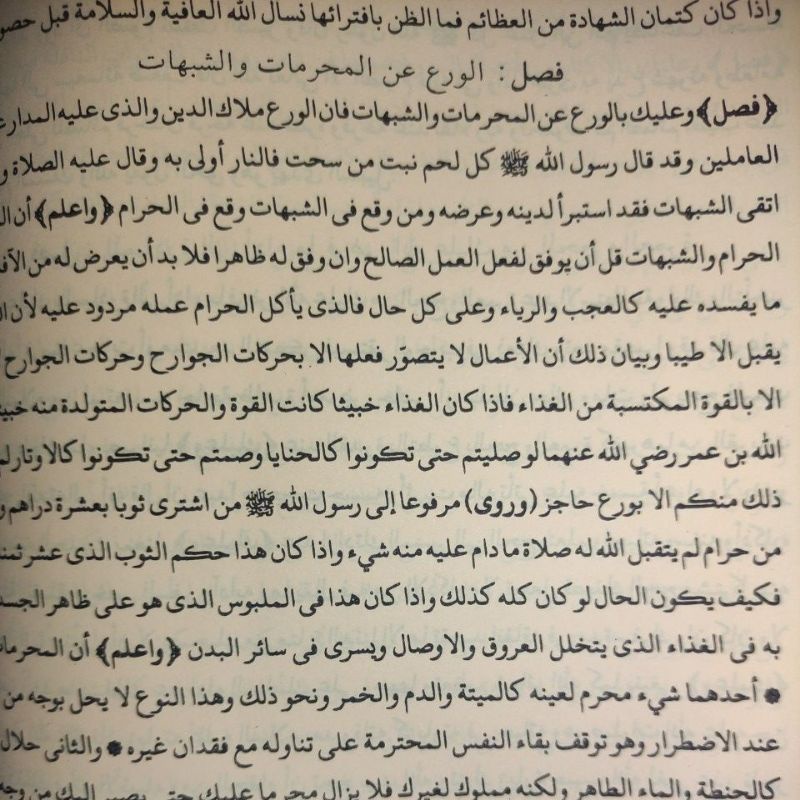 واذا كان كتمان الشهادة من العظائم فما الظن بافترائها نسال الله العافية والسلامة قبل
فصل: الورع عن المحرمات والشبهات
﴿فصل﴾ وعليك بالورع عن المحرمات والشبهات فان الورع ملاك الدين والذى عليه المدار
العاملين وقد قال رسول الله ﷺ كل لحم نبت من سحت فالنار أولى به وقال عليه الصلاة و
اتقى الشبهات فقد استبرأ لدينه وعرضه ومن وقع فى الشبهات وقع فى الحرام ﴿واعلم﴾ أن
الحرام والشبهات قل أن يوفق لفعل العمل الصالح وان وفق له ظاهرا فلا بد أن يعرض له من
ما يفسده عليه كالعجب والرياء وعلى كل حال فالذى يأكل الحرام عمله مردود عليه لأن
يقبل الا طيبا وبيان ذلك أن الأعمال لا يتصوّر فعلها الا بحركات الجوارح وحركات الجوارح
الا بالقوة المكتسبة من الغذاء فاذا كان الغذاء خبيثا كانت القوة والحركات المتولدة منه
الله بن عمر رضي الله عنهما لو صليتم حتى تكونوا كالحنايا وصمتم حتى تكونوا كالاوتار لم
ذلك منكم الا بورع حاجز (وروى) مرفوعا إلى رسول الله ﷺ من اشترى ثوبا بعشرة دراهم و
من حرام لم يتقبل الله له صلاة ما دام عليه منه شيء واذا كان هذا حكم الثوب الذى عشر
فكيف يكون الحال لو كان كله كذلك واذا كان هذا فى الملبوس الذى هو على ظاهر
به فى الغذاء الذى يتخلل العروق والاوصال ويسرى فى سائر البدن ﴿واعلم﴾ أن
* أحدهما شيء محرم لعينه كالميتة والدم والخمر ونحو ذلك وهذا النوع لا يحل بوجه من
عند الاضطرار وهو توقف بقاء النفس المحترمة على تناوله مع فقدان غيره * والثانى حلال
كالحنطة والماء الطاهر ولكنه مملوك لغيرك فلا يزال محرما عليك حتى يصير اليك من وجه